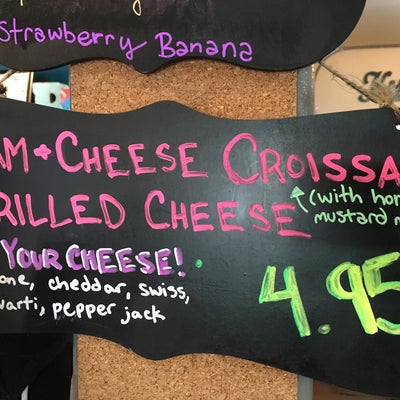 Strawberry Banana
AM + CHEESE CROISSA
RILLED CHEESE
(with hon
mustard m
YOUR CHEESE!
one, cheddar, swiss,
varti, pepper jack
4.95